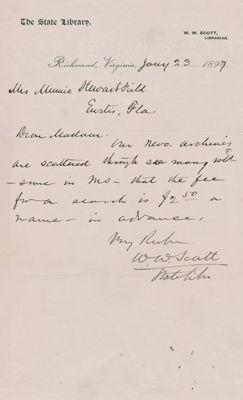 The State Library.
W. W. SCOTT,
LIBRARIAN.
Richmond, Virginia, Jany 23 1897
Mrs Minnie Stewart Field
Eustis, Fla.
Dear Madam.
Our Revo. archives
are scattered through so many vols
- some in Ms - that the fee
for a search is $2.50 a
name - in advance.
Very Resp
W. W. Scott
State Libn